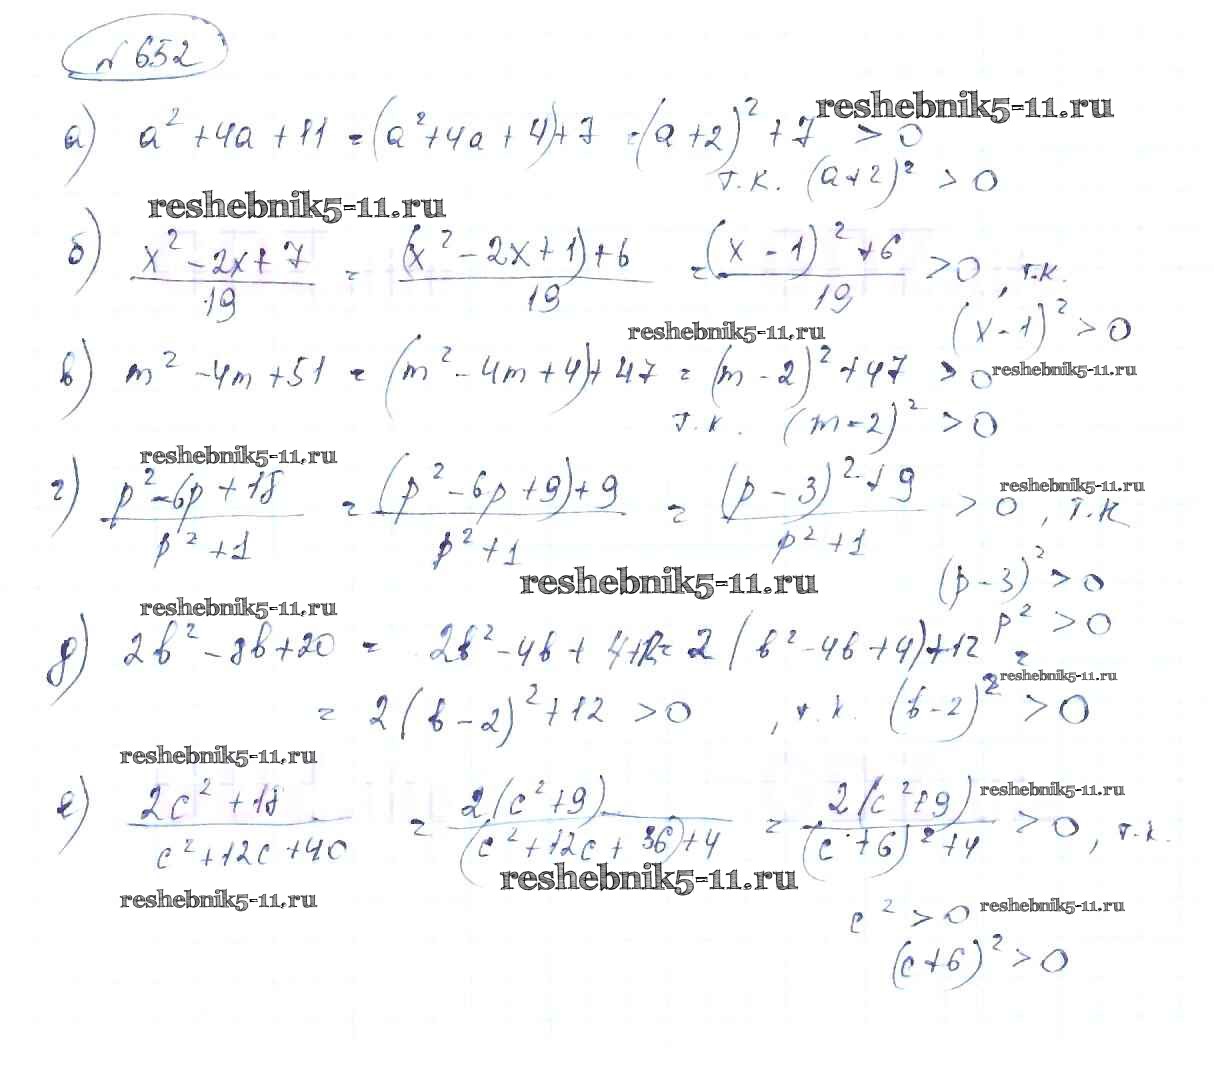 № 652
reshebnik5-11.ru
а) a² + 4a + 11 = (a² + 4a + 4) + 7 = (a + 2)² + 7 > 0
т.к. (a + 2)² > 0
reshebnik5-11.ru
б) (x² - 2x + 7)/19 = ((x² - 2x + 1) + 6)/19 = ((x - 1)² + 6)/19 > 0, т.к.
reshebnik5-11.ru
(x - 1)² > 0
в) m² - 4m + 51 = (m² - 4m + 4) + 47 = (m - 2)² + 47 > 0
reshebnik5-11.ru
т.к. (m - 2)² > 0
reshebnik5-11.ru
г) (p² - 6p + 18)/(p² + 1) = ((p² - 6p + 9) + 9)/(p² + 1) = ((p - 3)² + 9)/(p² + 1) > 0, т.к
reshebnik5-11.ru
reshebnik5-11.ru
(p - 3)² > 0
reshebnik5-11.ru
p² > 0
д) 2b² - 8b + 20 = 2b² - 4b + = 2(b² - 4b + 4) + 12 =
reshebnik5-11.ru
= 2(b - 2)² + 12 > 0, т.к. (b - 2)² > 0
reshebnik5-11.ru
е) (2c² + 18)/(c² + 12c + 40) = 2(c² + 9)/((c² + 12c + 36) + 4) = 2(c² + 9)/((c + 6)² + 4) > 0, т.к.
reshebnik5-11.ru
reshebnik5-11.ru
reshebnik5-11.ru
c² > 0
reshebnik5-11.ru
(c + 6)² > 0